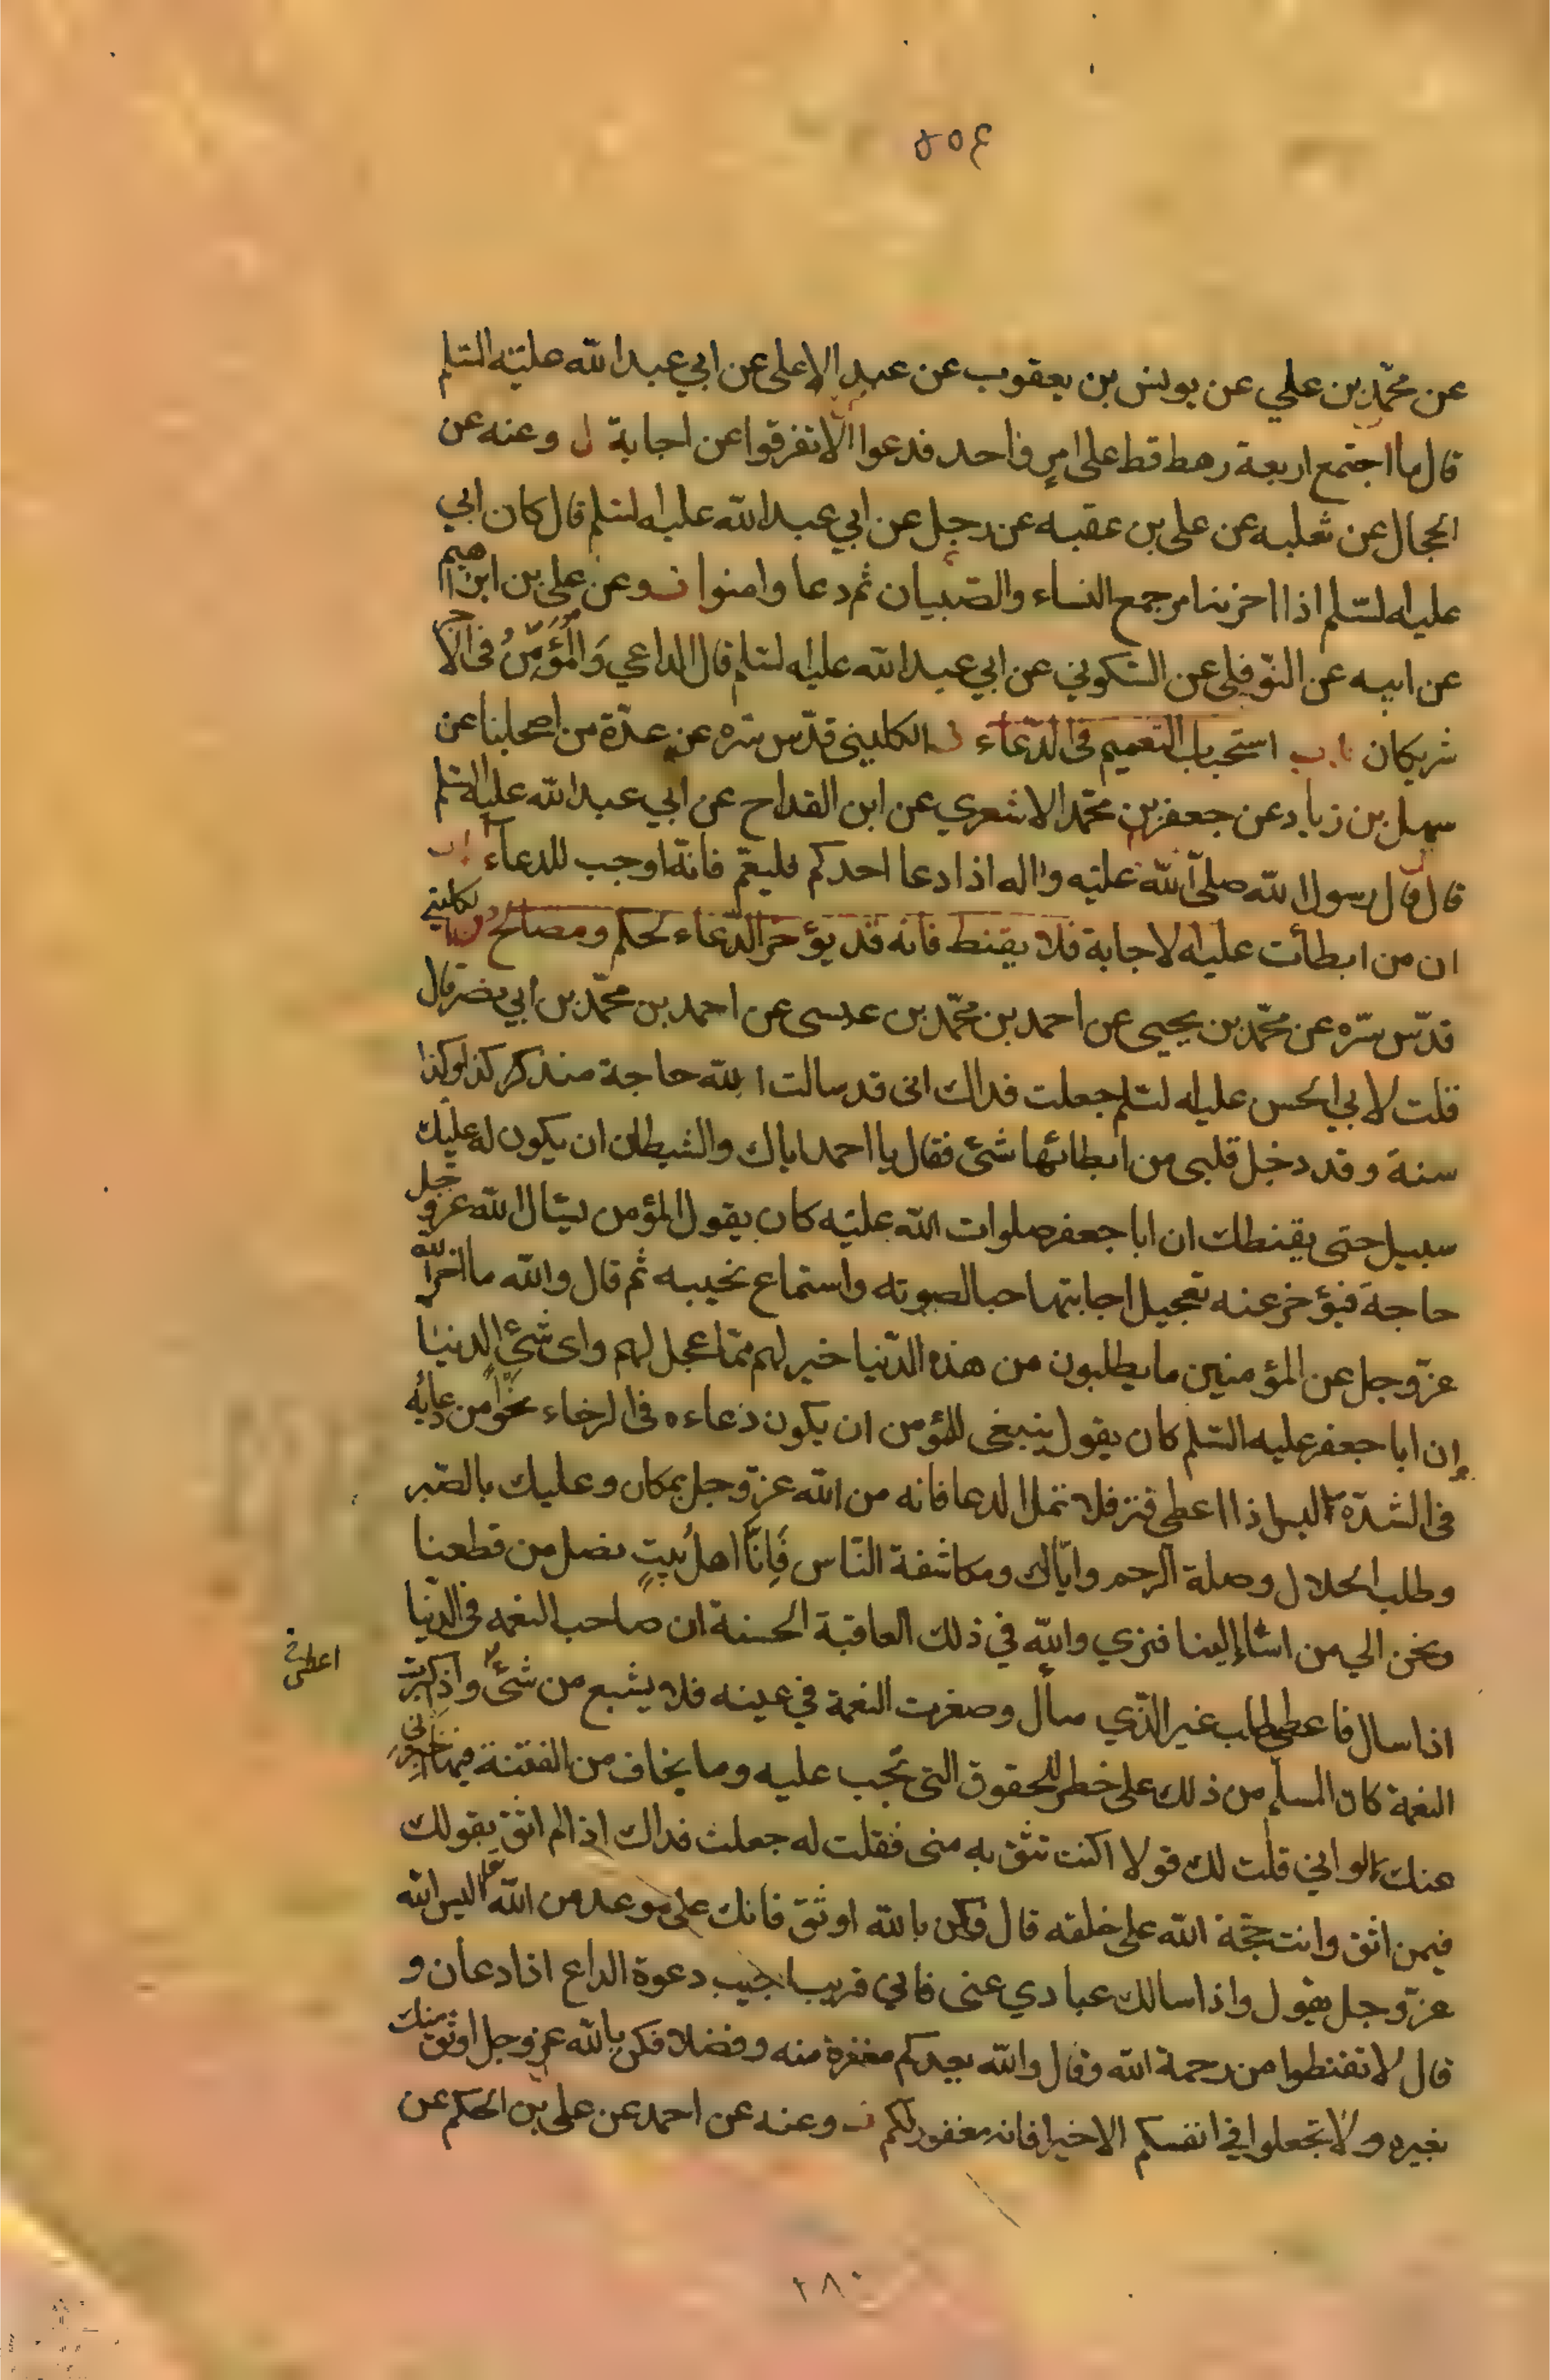 ٤٥٨
عن محمّد بن علي عن يونس بن يعقوب عن عبد الاعلى عن ابي عبد الله عليه السّلم
قال ما اجتمع اربعة رهط قط على امرٍ واحد فدعوا الا تفرقوا عن اجابة وعنه عن
الحجال عن ثعلبه عن على بن عقبه عن رجل عن ابي عبد الله عليه السلم قال كان ابي
عليه السّلم اذا احزننا امر جمع النساء والصّبيان ثم دعا وامنوا وعن على بن ابرهيم
عن ابيه عن النّوفلى عن السّكوني عن ابي عبد الله عليه السلم قال الداعي وَالمُؤَمِّنُ فى الاجر
شريكان باب استحباب التعميم فى الدّعاء الكلينى قدّس سّره عن عدّة من اصحابنا عن
سهل بن زياد عن جعفر بن محمّد الاشعري عن ابن القداح عن ابي عبد الله عليه السلم
قال قال رسول الله صلّى الله عليه واله اذا دعا احدكم فليعمّ فانّه اوجب للدعاء باب
ان من ابطأت عليه الاجابة فلا يقنط فانه قد يؤخر الدّعاء لحكم ومصالح الكلينى
قدّس سّره عن محمّد بن يحيى عن احمد بن محمّد بن عيسى عن احمد بن محمّد بن ابي نصر قال
قلت لابي الحسن عليه السلم جعلت فداك انى قد سالت الله حاجة منذ كر كذا وكذا
سنة وقد دخل قلبى من ابطائها شئ فقال يا احمد اياك والشيطان ان يكون له عليك
سبيل حتى يقنطك ان ابا جعفر صلوات الله عليه كان يقول المؤمن يسٔال الله عز وجل
حاجة فيؤخر عنه تعجيل اجابتها حبا لصوته واستماع نحيبه ثم قال والله ما اخر الله
عزّوجل عن المؤمنين ما يطلبون من هذه الدّنيا خير لهم ممّا عجل لهم واى شئ الدنيا
إن ابا جعفر عليه السّلم كان يقول ينبغى للمؤمن ان يكون دعاءه فى الرخاء نحوًا من دعائه
فى الشدّة ليس اذا اعطى فتر فلا تمل الدعا فانه من الله عزّوجل بمكان وعليك بالصّبر
وطلب الحلال وصلة الرحم وايّاك ومكاشفة النّاس فَاِنَّا اهلُ بيتٍ نصل من قطعنا
ونحن الي من اسٔا إلينا فنري والله في ذلك العاقبة الحسنة ان صاحب النعمه فى الدّنيا
اذا سال فاعطى طلب غير الذّي سأل وصغرت النعمة في عينه فلا يشبع من شئ واذ كثرت
النعمة كان المسلم من ذلك على خطر للحقوق التى تجب عليه وما يخاف من الفتنة فيها اخبرنى
عنك لو اني قلت لك قولا اكنت تثق به منى فقلت له جعلت فداك اذا لم اثق بقولك
فيمن اثق وانت حجّة الله على خلقه قال فكن بالله اوثق فانك على موعد من الله اليس الله
عزّوجل يقول واذا سالك عبادي عنى فاني قريب اجيب دعوة الداع اذا دعان و
قال لا تقنطوا من رحمة الله وقال والله يعدكم مغفرة منه وفضلا فكن بالله عزوجل اوثق منك
بغيره ولا تجعلوا في انفسكم الا خيرا فانه مغفور لكم وعنه عن احمد عن على بن الحكم عن
٢٨٠